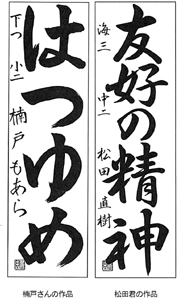 友好の精神
海三 中二 松田直樹
はつゆめ
下つ 小二 楠戸もあら
松田君の作品
楠戸さんの作品